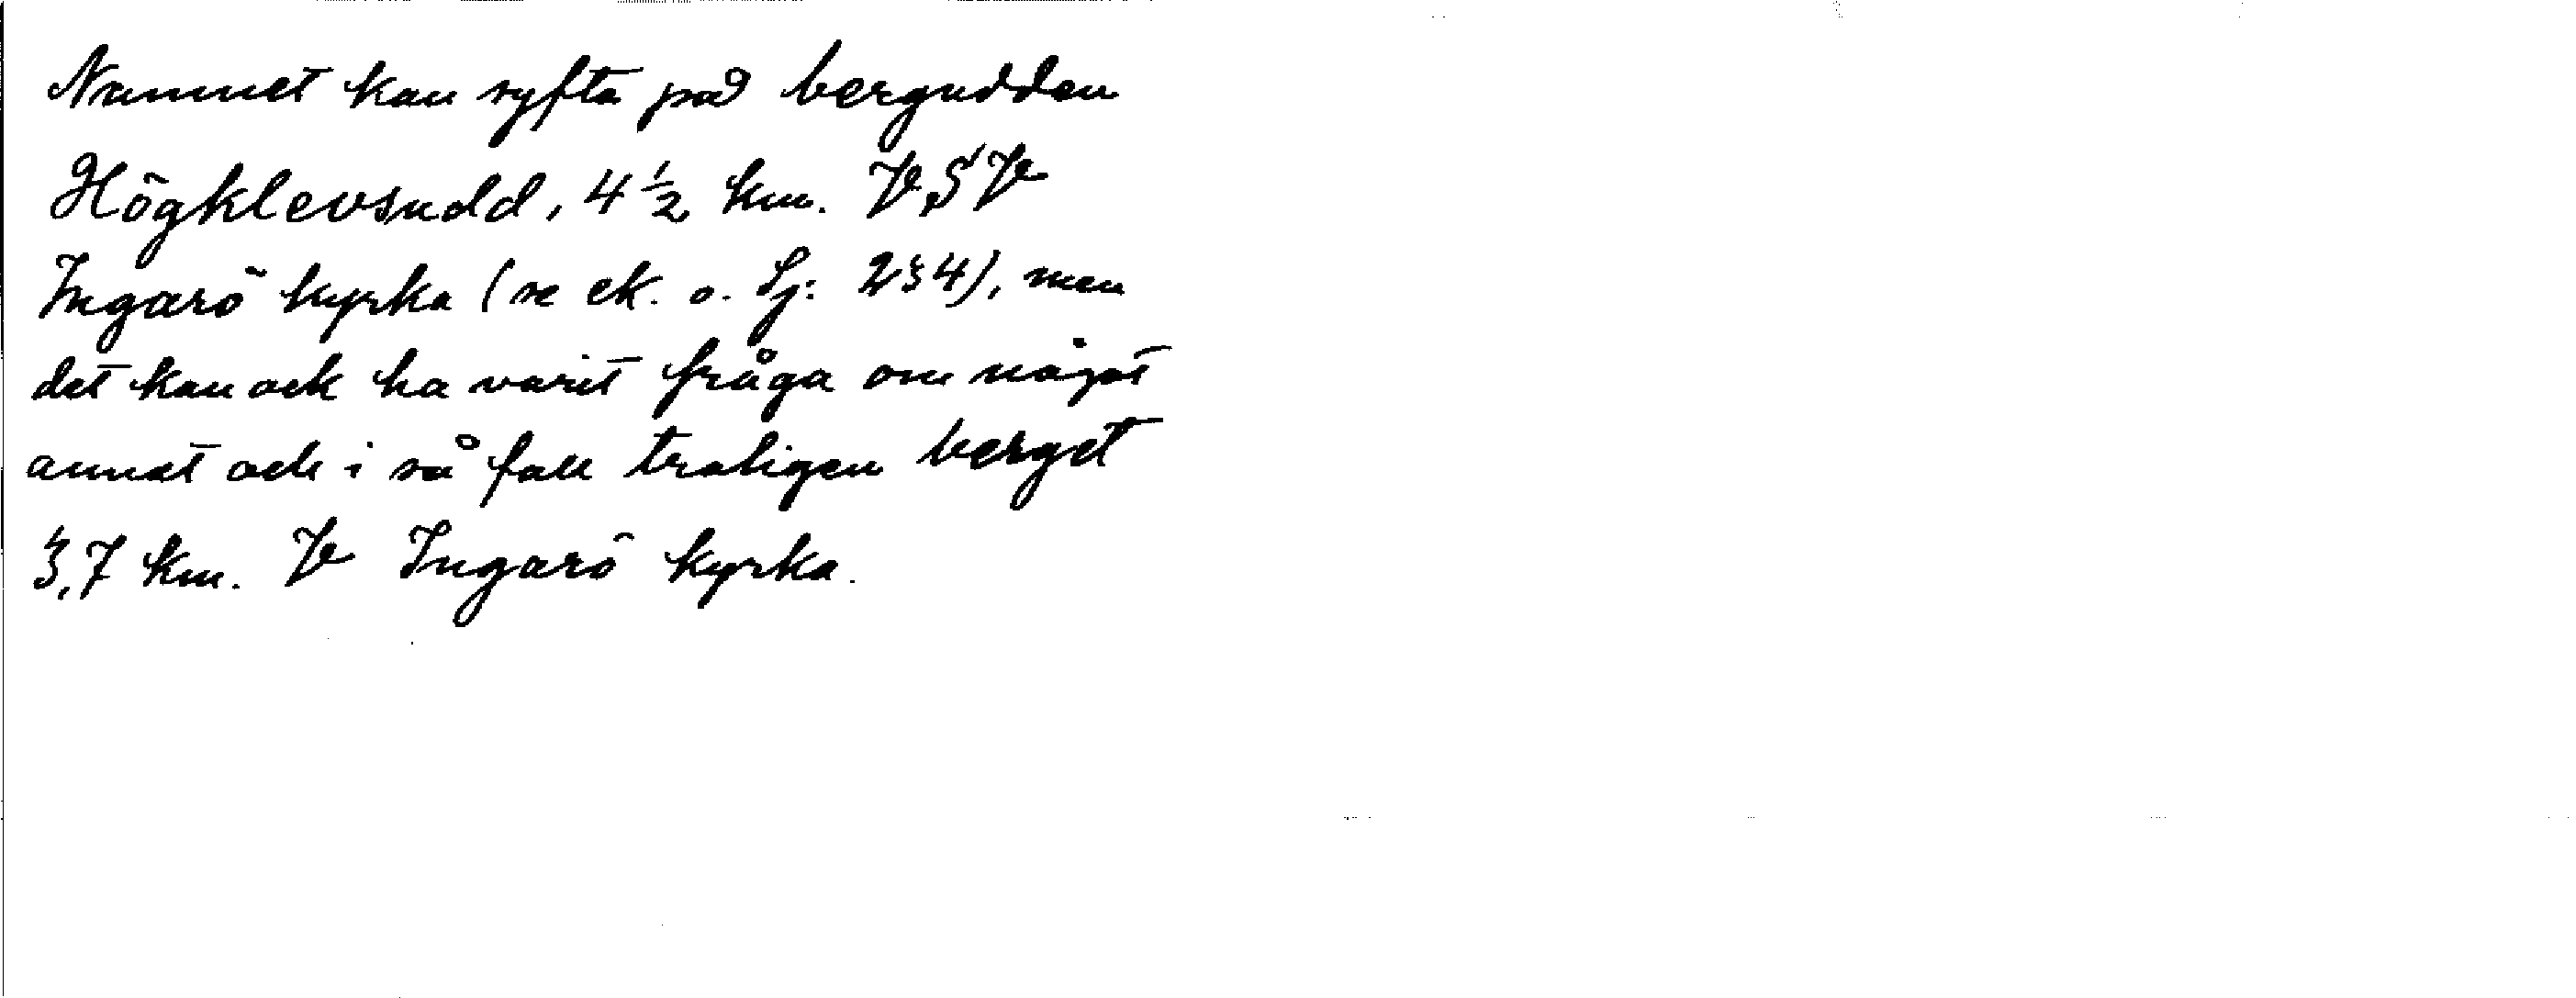 Namnet kan syfta på bergudden
Högklevsudd, 4 1/2 km. V,S V
Ingarö kyrka (se ek. o. Sj: 234), men
det kan ock ha varit fråga om något
annat och i så fall troligen berget
3,7 km. V Ingarö kyrka.